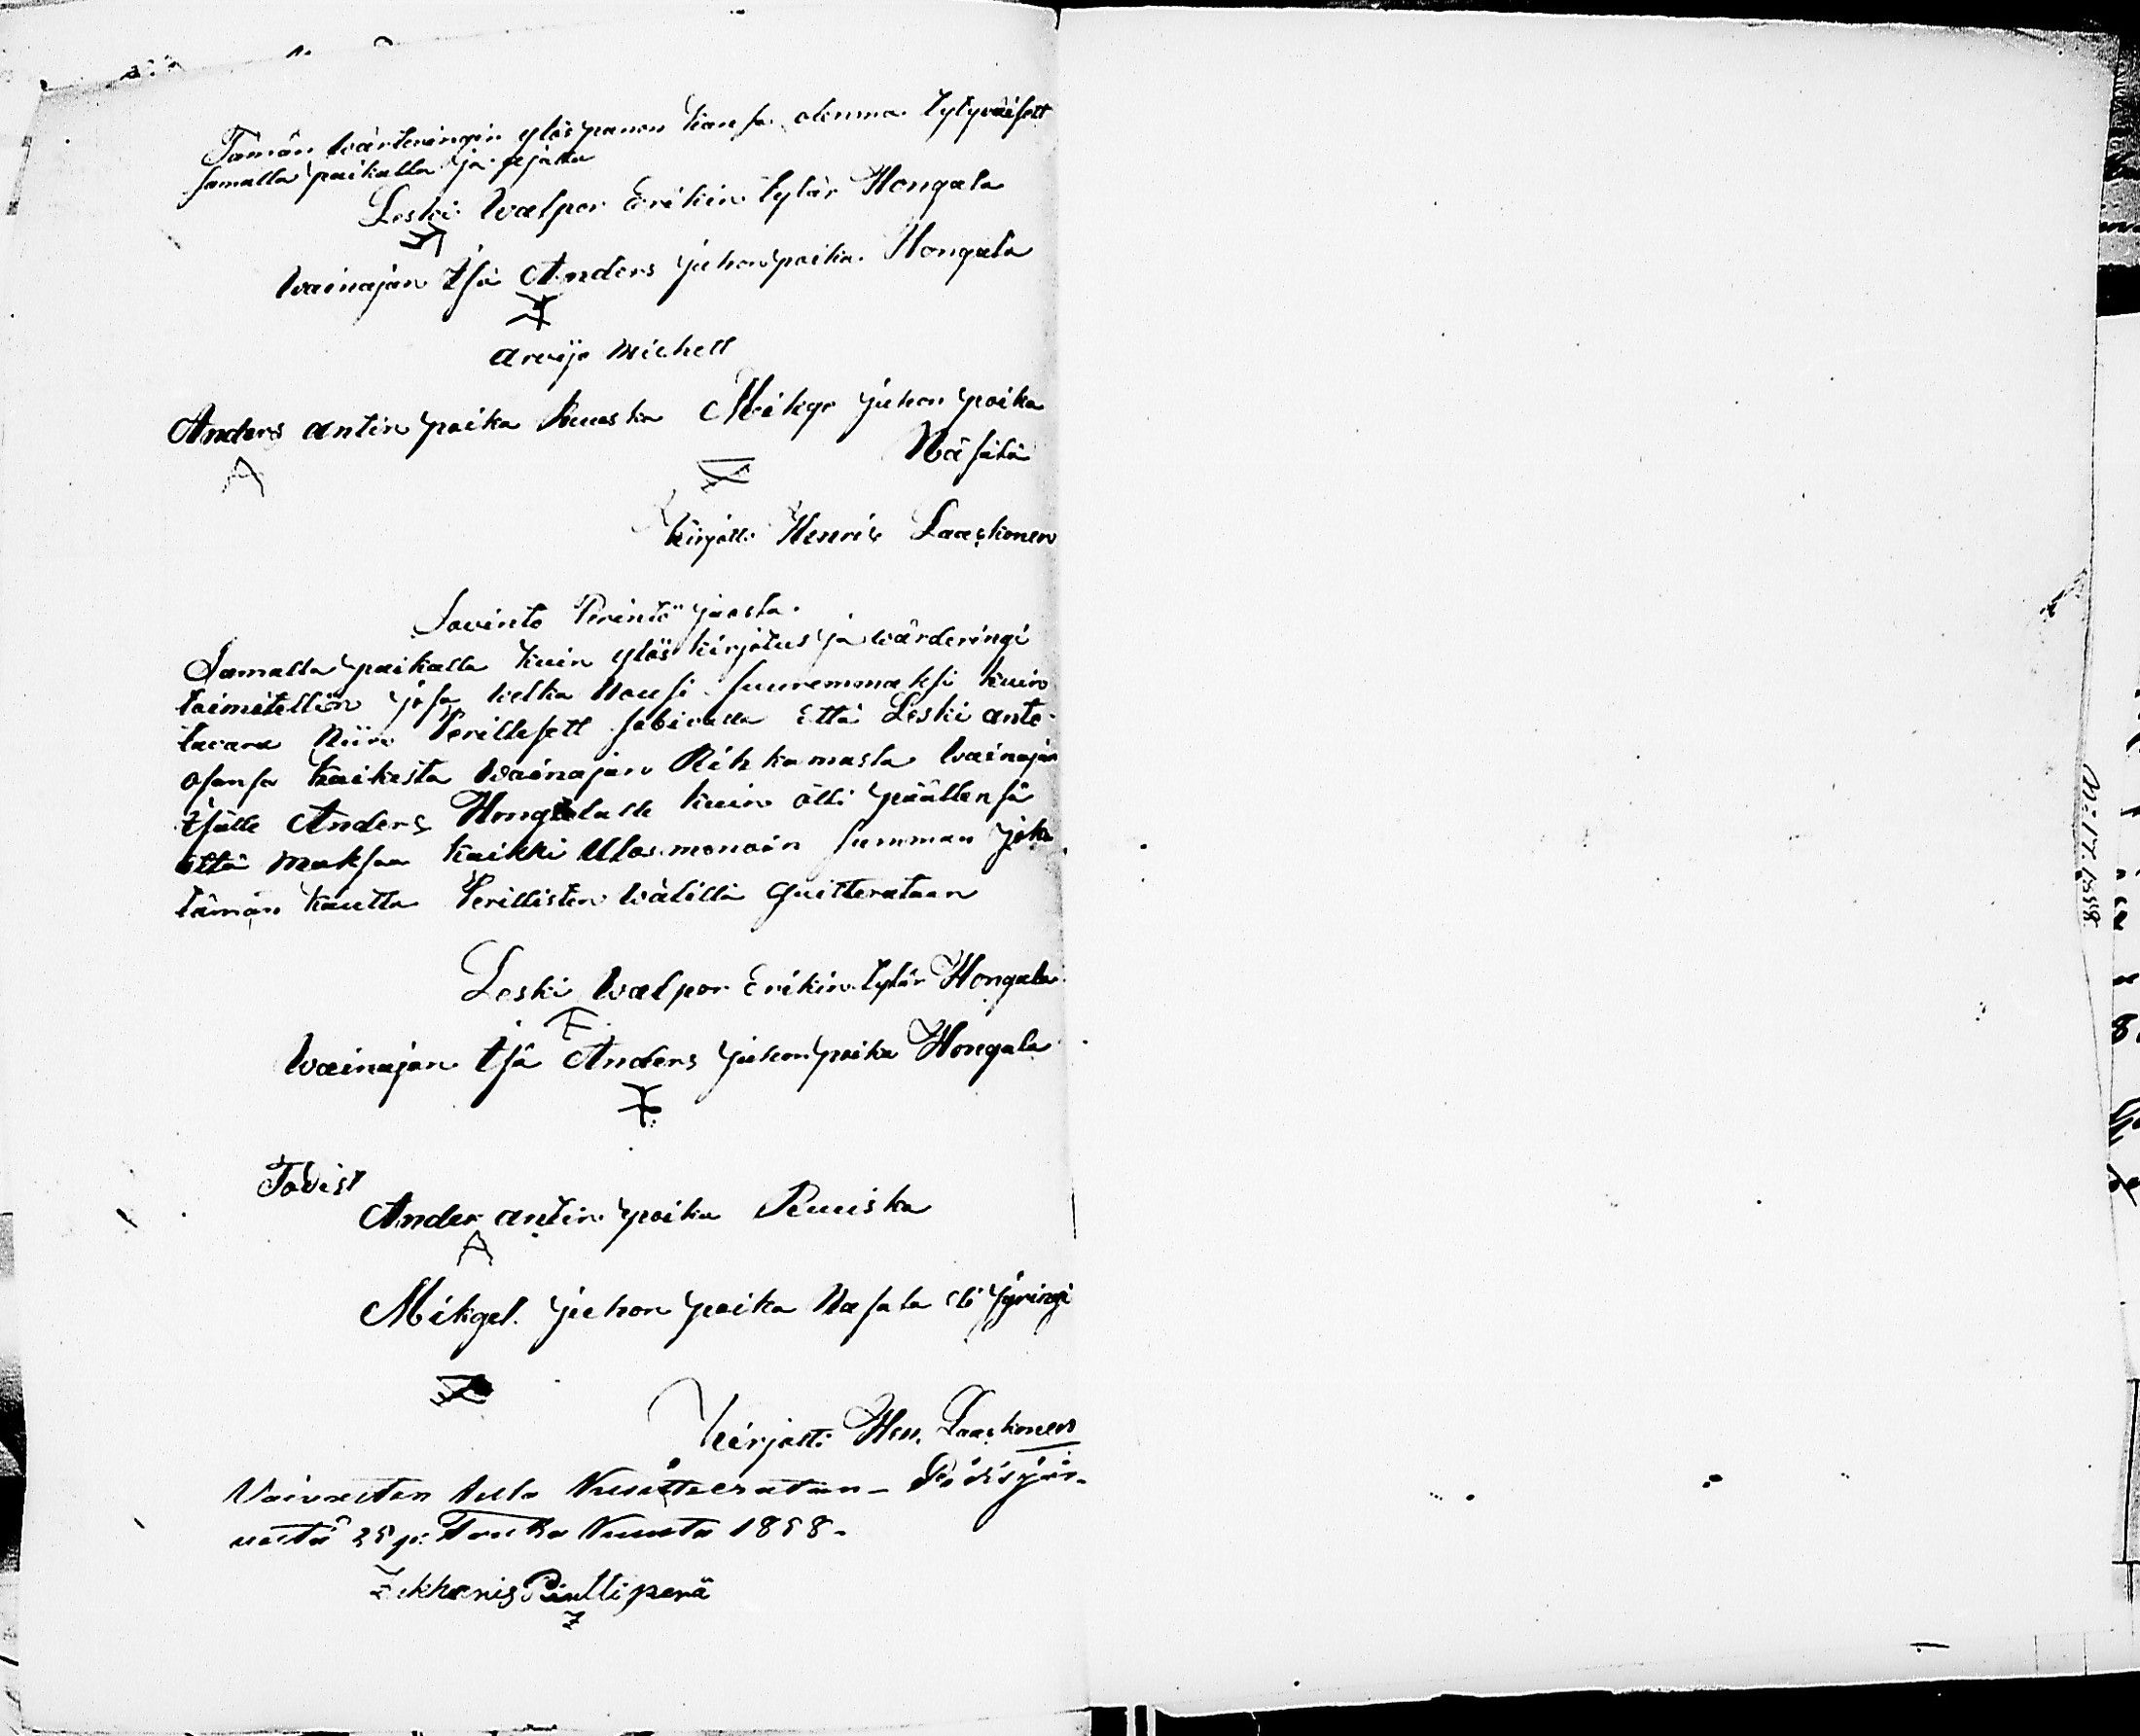 Tämän wärteringin ylös panon kansa olemma tytyväiset
samalla paikalla ja
Leski Walpor Erikin tytär Hongala
Wainajan Isä Anders juhonpoika Hongala
arvijo Miehett
Anders antin poika Ruuska Mikge juhon poika
Näsälä
Kirjotti Henrik Laaskonen
Sovinto Perintö jaosta.
Samalla paikalla kuin ylös kirjotus ja wärderingi
toimitettiin josa velka Nousi suuremmaksi kuin
tavara Niin Perillisett sobivatta Että Leski anto
osansa kaikista Wainajan Rihkamasta Wainajan
Isälle Anders Hongalalle kuin otti päällensä
että maksaa kaikki Ulosmenoin summan joka
tämän kautta Perillisten wälillä quitterataan
Leski Walpor Erikin tytär Hongala
Wainajan Isä Anders juhonpoika Hongala
Todist
Ander antin poika Ruuiska
Mikgel juhon poika Nasala
Kirjotti Hen. Laaskonen
Vaivasten tulo Kuitterataan - Pidisjär-
veltä 25 p: Touko Kuuta 1858.
Zakharis Pinttiperä
Z